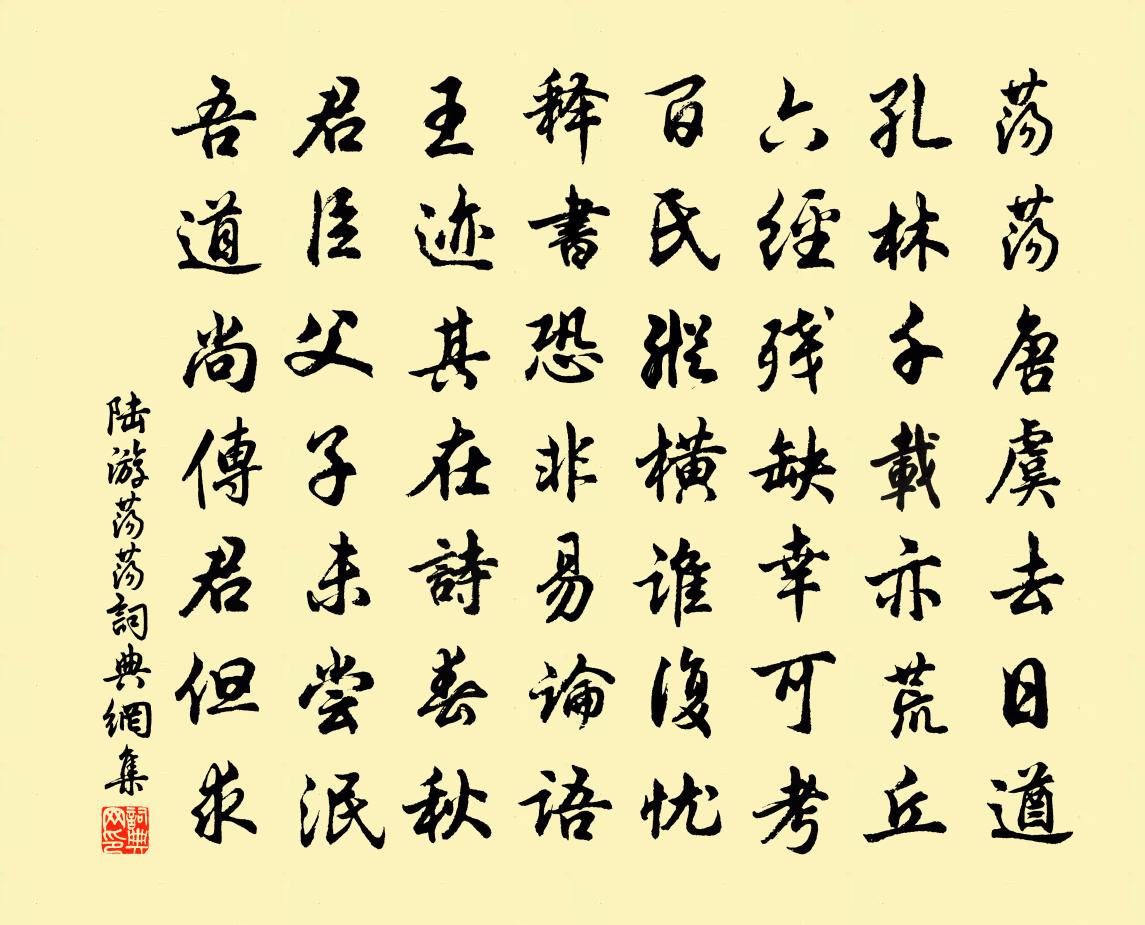 荡荡唐虞去日遒
孔林千載亦荒丘
六經残缺幸可考
百氏縱橫谁復忧
释書恐非易論語
王迹其在詩春秋
君臣父子未尝泯
吾道尚傳君但求
陆游荡荡詞典網集
詞典网印